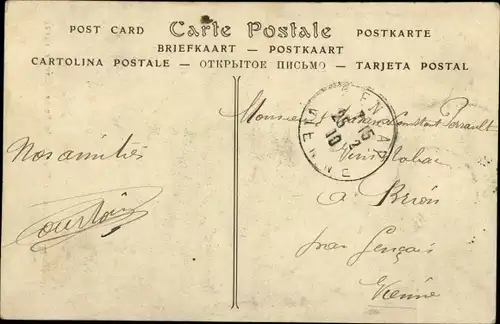 POST CARD Carte Postale POSTKARTE
BRIEFKAART — POSTKAART
CARTOLINA POSTALE — ОТКРЫТОЕ ПИСЬМО — TARJETA POSTAL
Nos amitiés
Monsieur Constant Perrault
à Brion
par Gençais
Vienne
GENÇAY
7-15
25-2
10
VIENNE